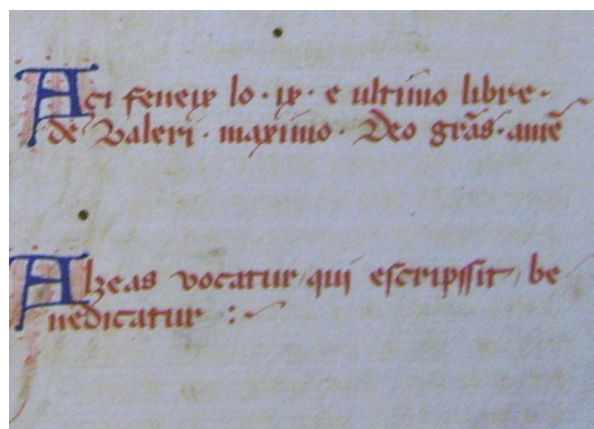 Açi feneix lo · ix · e ultimo libre ·
de Valeri · maximo · Deo grãs · amẽ
Alzeas vocatur qui escripssit be
nedicatur :